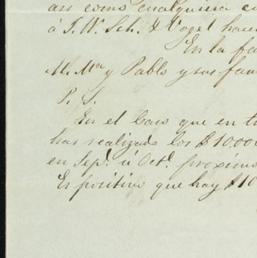 así como cualquiera
á J. W. Sch. & Vogel hace
En la fa
M. Ma y Pablo y sus fam
P. S.
En el Caso que en t
has realizado los $10.000
en Sep.e ú Oct.e próximo
Es positivo que hay $10